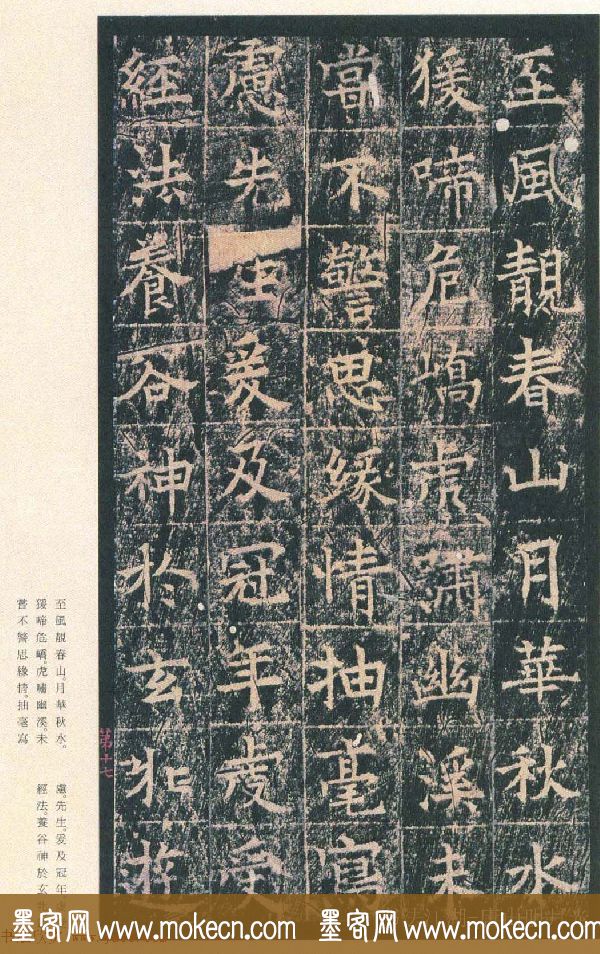 至風靚春山月華秋水
猨啼危嶠虎嘯幽溪未
嘗不警思緣情抽毫寫
慮先生爰及冠年虔受
經法養谷神於玄北遊
至風靚春山。月華秋水。
猨啼危嶠。虎嘯幽溪。未
嘗不警思緣情。抽毫寫
慮。先生。爰及冠年
經法。養谷神於玄
第十七
墨客网 www.mokecn.com 墨客网 www.mokecn.com